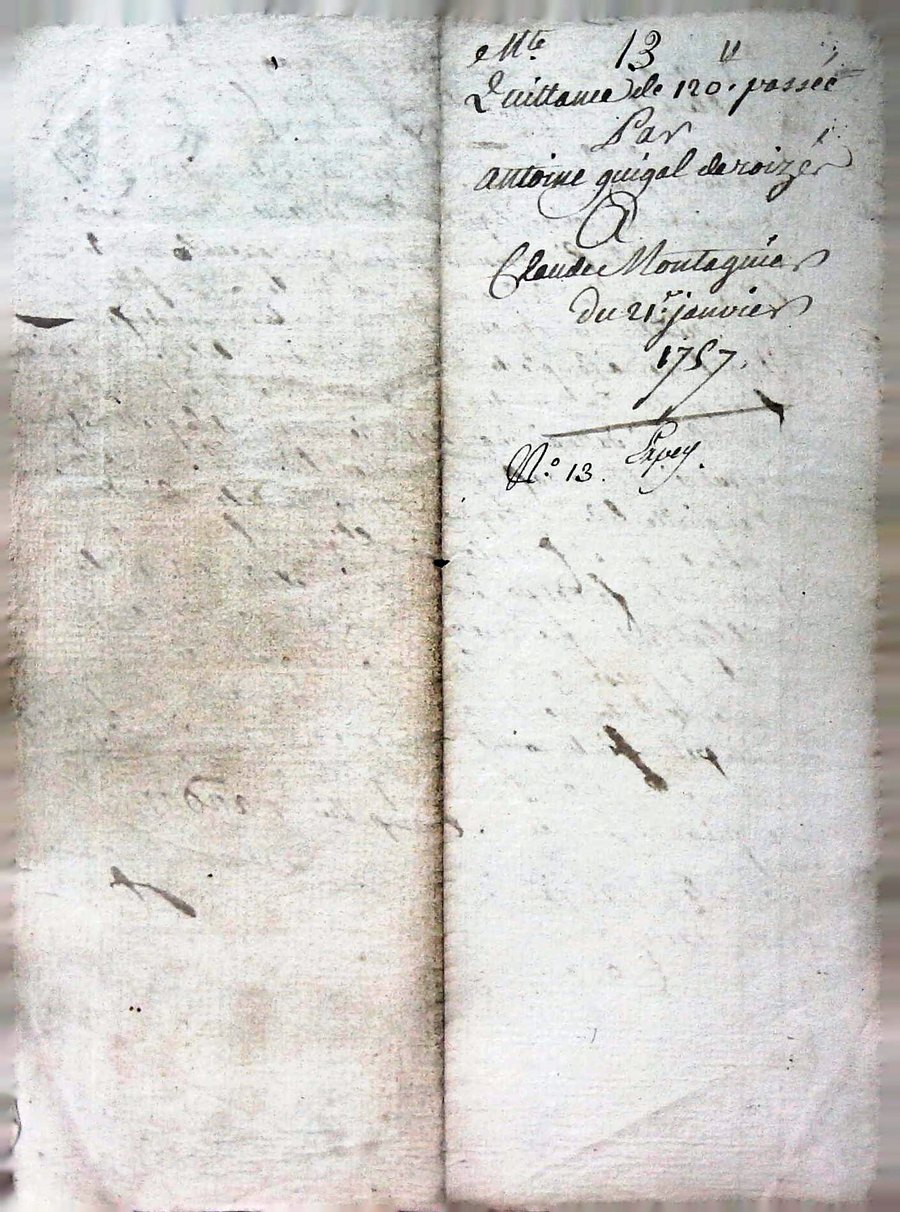 Mte 13 ll
Quittance de 120. passée
Par
antoine guigal de roizé
A
Claude Montagnier
Du 21.r janvier
1757.
Expey.
N.o 13.